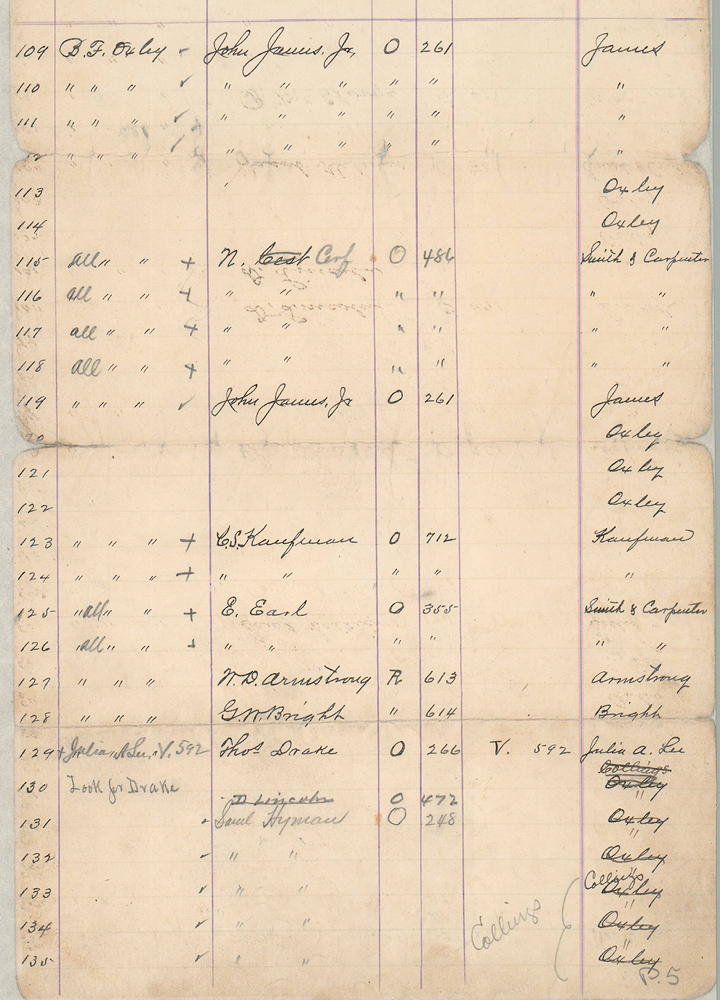 109 B. F. Oxley ✓ John James, Jr, O 261 James
110 " " " ✓ " " " " " "
111 " " " ✓ " " " " " "
" " " ✓ " " " " " "
113 " Oxley
114 Oxley
115 all " " + N. Cerf O 486 Smith & Carpenter
116 all " " + " " " " " "
117 all " " + " " " " " "
118 all " " + " " " " " "
119 " " " ✓ John James, Jr O 261 James
Oxley
121 Oxley
122 Oxley
123 " " " + C. S. Kaufman O 712 Kaufman
124 " " " + " " " " "
125 " all " " + E. Earl O 355 Smith & Carpenter
126 " all " " + " " " " " "
127 " " " W. D. Armstrong R 613 Armstrong
128 " " " G. W. Bright " 614 Bright
129 + Julia A Lee, V. 592 Thos Drake O 266 V. 592 Julia A. Lee
Collings
130 Look for Drake Oxley
D Lincoln O 472 "
131 ✓ Saml Hyman O 248 Oxley
"
132 ✓ " " Oxley
Collings
133 ✓ " " Oxley
"
134 ✓ " " Collings Oxley
"
135 ✓ " " Oxley
P. 5